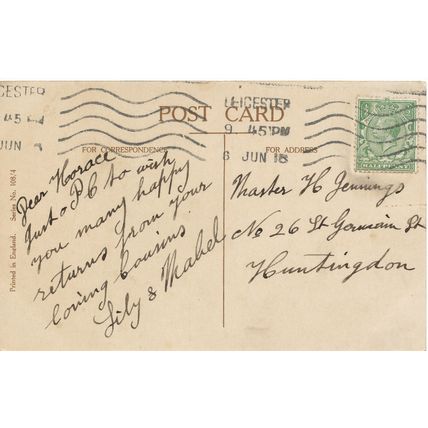 LEICESTER
9 45 PM
6 JUN 18
CESTER
45 PM
JUN
POST CARD
FOR CORRESPONDENCE
FOR ADDRESS
Printed in England. Series No. 108/4
Dear Horace
Just a PC to wish
you many happy
returns from your
loving Cousins
Lily & Mabel
Master H Jennings
No 26 St Germain St
Huntingdon